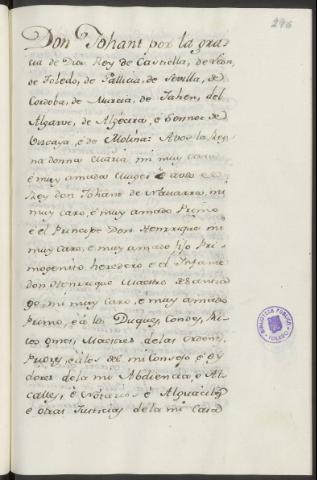 296
Don Johant por la gra-
cia de Dios Rey de Castiella, de Leon,
de Toledo, de Gallicia, de Sevilla, de
Cordoba, de Murcia, de Jahen, del
Algarve, de Algecira, è Sennor de
Viscaya, è de Molina: A vos la Rey-
na donna Maria mi muy cara
è muy amada Muger è a vos el
Rey don Johant de Navarra, mi
muy caro, è muy amado Primo
è el Principe Don Henrrique mi
muy caro, è muy amado fijo Pri-
mogenito heredero è el Infante
don Henrrique Maestro de Santia-
go, mi muy caro, è muy amado
Primo, è à los Duques, Condes, Ri-
cos omes, Maestres de las Ordenes,
Priores, è à los del mi Consejo è oy-
dores de la mi Abdiencia, è Al-
calles, è Notarios è Alguaciles
è otras Justicias de la mi Casa
BIBLIOTECA PUBLICA
TOLEDO